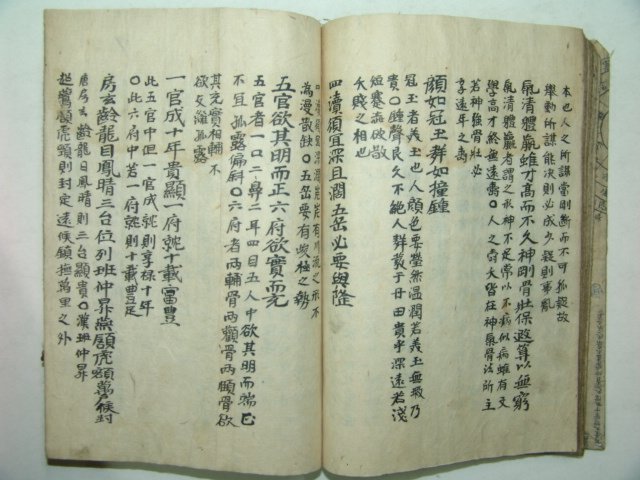 本也人之所謀當則斷而不可狐疑故
擧動所謀能決則必成少疑則事亂
氣清體羸雖才高而不久神剛骨壯保遐算以無窮
氣清體羸者謂之神不足常以不病似病雖有文
學高才終無遠壽〇人之窮大皆在神氣骨法所主
若神強骨壯必
享遠年之壽
顔如冠玉群如撞鍾
冠玉者美玉也人顔色要瑩然温潤若美玉無瑕乃
貴〇鍾聲良久不絶人群蔉于丹田貴乎深遠若淺
短蹇澁破散
夭賤之相也
四瀆須宜深且濶五岳必要與隆
崩漫散缺〇五岳要有峻極之勢
五官欲其明而正六府欲實而充
五官者一口二鼻三耳四目五人中欲其明而端正
不豆孤露偏斜〇六府者兩輔骨兩顴骨兩頤骨欲
其充實相輔不
欲攴離孤露
一官成十年貴顯一府就十載富豊
此五官中但一官成就則享祿十年
〇此六府中若一府就則十載豊足
房玄齡龍目鳳晴三台位列班仲昇燕頷虎頭萬戶候封
唐房玄齡龍目鳳晴則三台顯貴〇漢班仲昇
燕頷虎頭則封定遠候鎮撫萬里之外